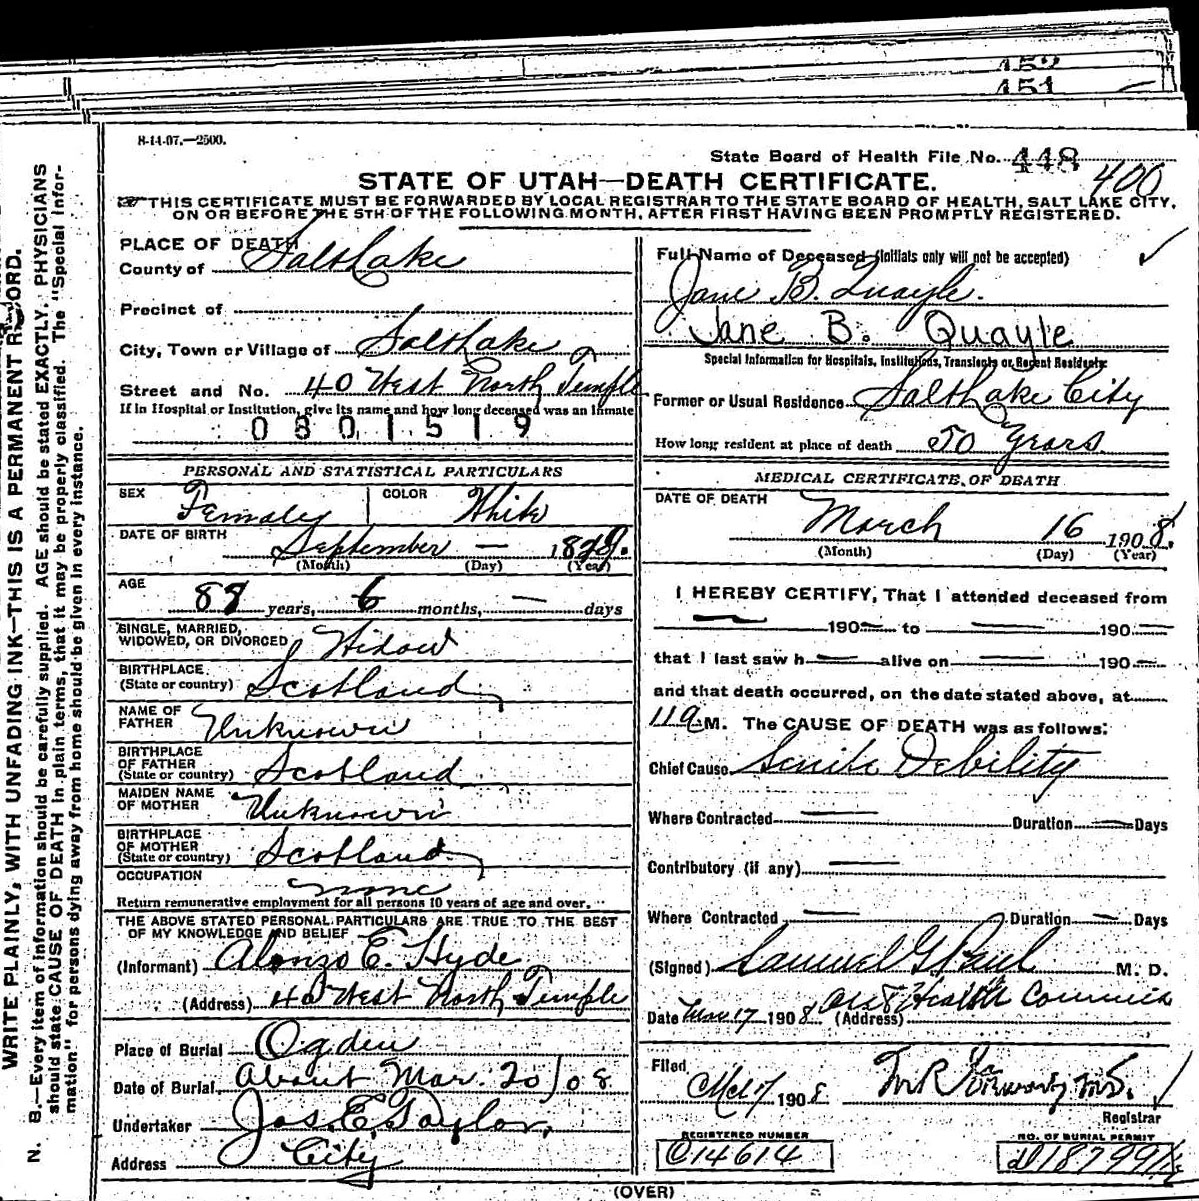 452
451
8-14-07.—2500.
State Board of Health File No. 448
400
STATE OF UTAH—DEATH CERTIFICATE.
THIS CERTIFICATE MUST BE FORWARDED BY LOCAL REGISTRAR TO THE STATE BOARD OF HEALTH, SALT LAKE CITY,
ON OR BEFORE THE 5TH OF THE FOLLOWING MONTH, AFTER FIRST HAVING BEEN PROMPTLY REGISTERED.
WRITE PLAINLY, WITH UNFADING INK—THIS IS A PERMANENT RECORD.
N. B.—Every item of information should be carefully supplied. AGE should be stated EXACTLY. PHYSICIANS
should state CAUSE OF DEATH in plain terms, that it may be properly classified. The "Special Infor-
mation" for persons dying away from home should be given in every instance.
PLACE OF DEATH
County of Salt Lake
Precinct of
City, Town or Village of Salt Lake
Street and No. 40 West North Temple
If in Hospital or Institution, give its name and how long deceased was an inmate
0 3 0 1 5 1 9
PERSONAL AND STATISTICAL PARTICULARS
SEX Female COLOR White
DATE OF BIRTH September —
(Month) (Day) (Year)
AGE
years, 6 months, — days
SINGLE, MARRIED,
WIDOWED, OR DIVORCED Widow
BIRTHPLACE
(State or country) Scotland
NAME OF
FATHER Unknown
BIRTHPLACE
OF FATHER
(State or country) Scotland
MAIDEN NAME
OF MOTHER Unknown
BIRTHPLACE
OF MOTHER
(State or country) Scotland
OCCUPATION
none
Return remunerative employment for all persons 10 years of age and over.
THE ABOVE STATED PERSONAL PARTICULARS ARE TRUE TO THE BEST
OF MY KNOWLEDGE AND BELIEF
(Informant) Alonzo E. Hyde
(Address) 40 West North Temple
Place of Burial Ogden
Date of Burial, About Mar. 20/08
Undertaker Jos. E. Taylor,
Address City
Full Name of Deceased (Initials only will not be accepted)
Jane B. Quayle.
Jane B. Quayle
Special Information for Hospitals, Institutions, Transients or Recent Residents:
Former or Usual Residence Salt Lake City
How long resident at place of death 50 Years
MEDICAL CERTIFICATE OF DEATH
DATE OF DEATH
March 16 1908.
(Month) (Day) (Year)
I HEREBY CERTIFY, That I attended deceased from
— 190— to — 190—
that I last saw h— alive on — 190—
and that death occurred, on the date stated above, at
M. The CAUSE OF DEATH was as follows:
Chief Cause Senile Debility
Where Contracted — Duration — Days
Contributory (if any) —
Where Contracted — Duration — Days
(Signed) Samuel G Paul M. D.
Health
Date Mar 17 1908 (Address)
Filed
1908
Registrar
REGISTERED NUMBER
C14614
NO. OF BURIAL PERMIT
(OVER)